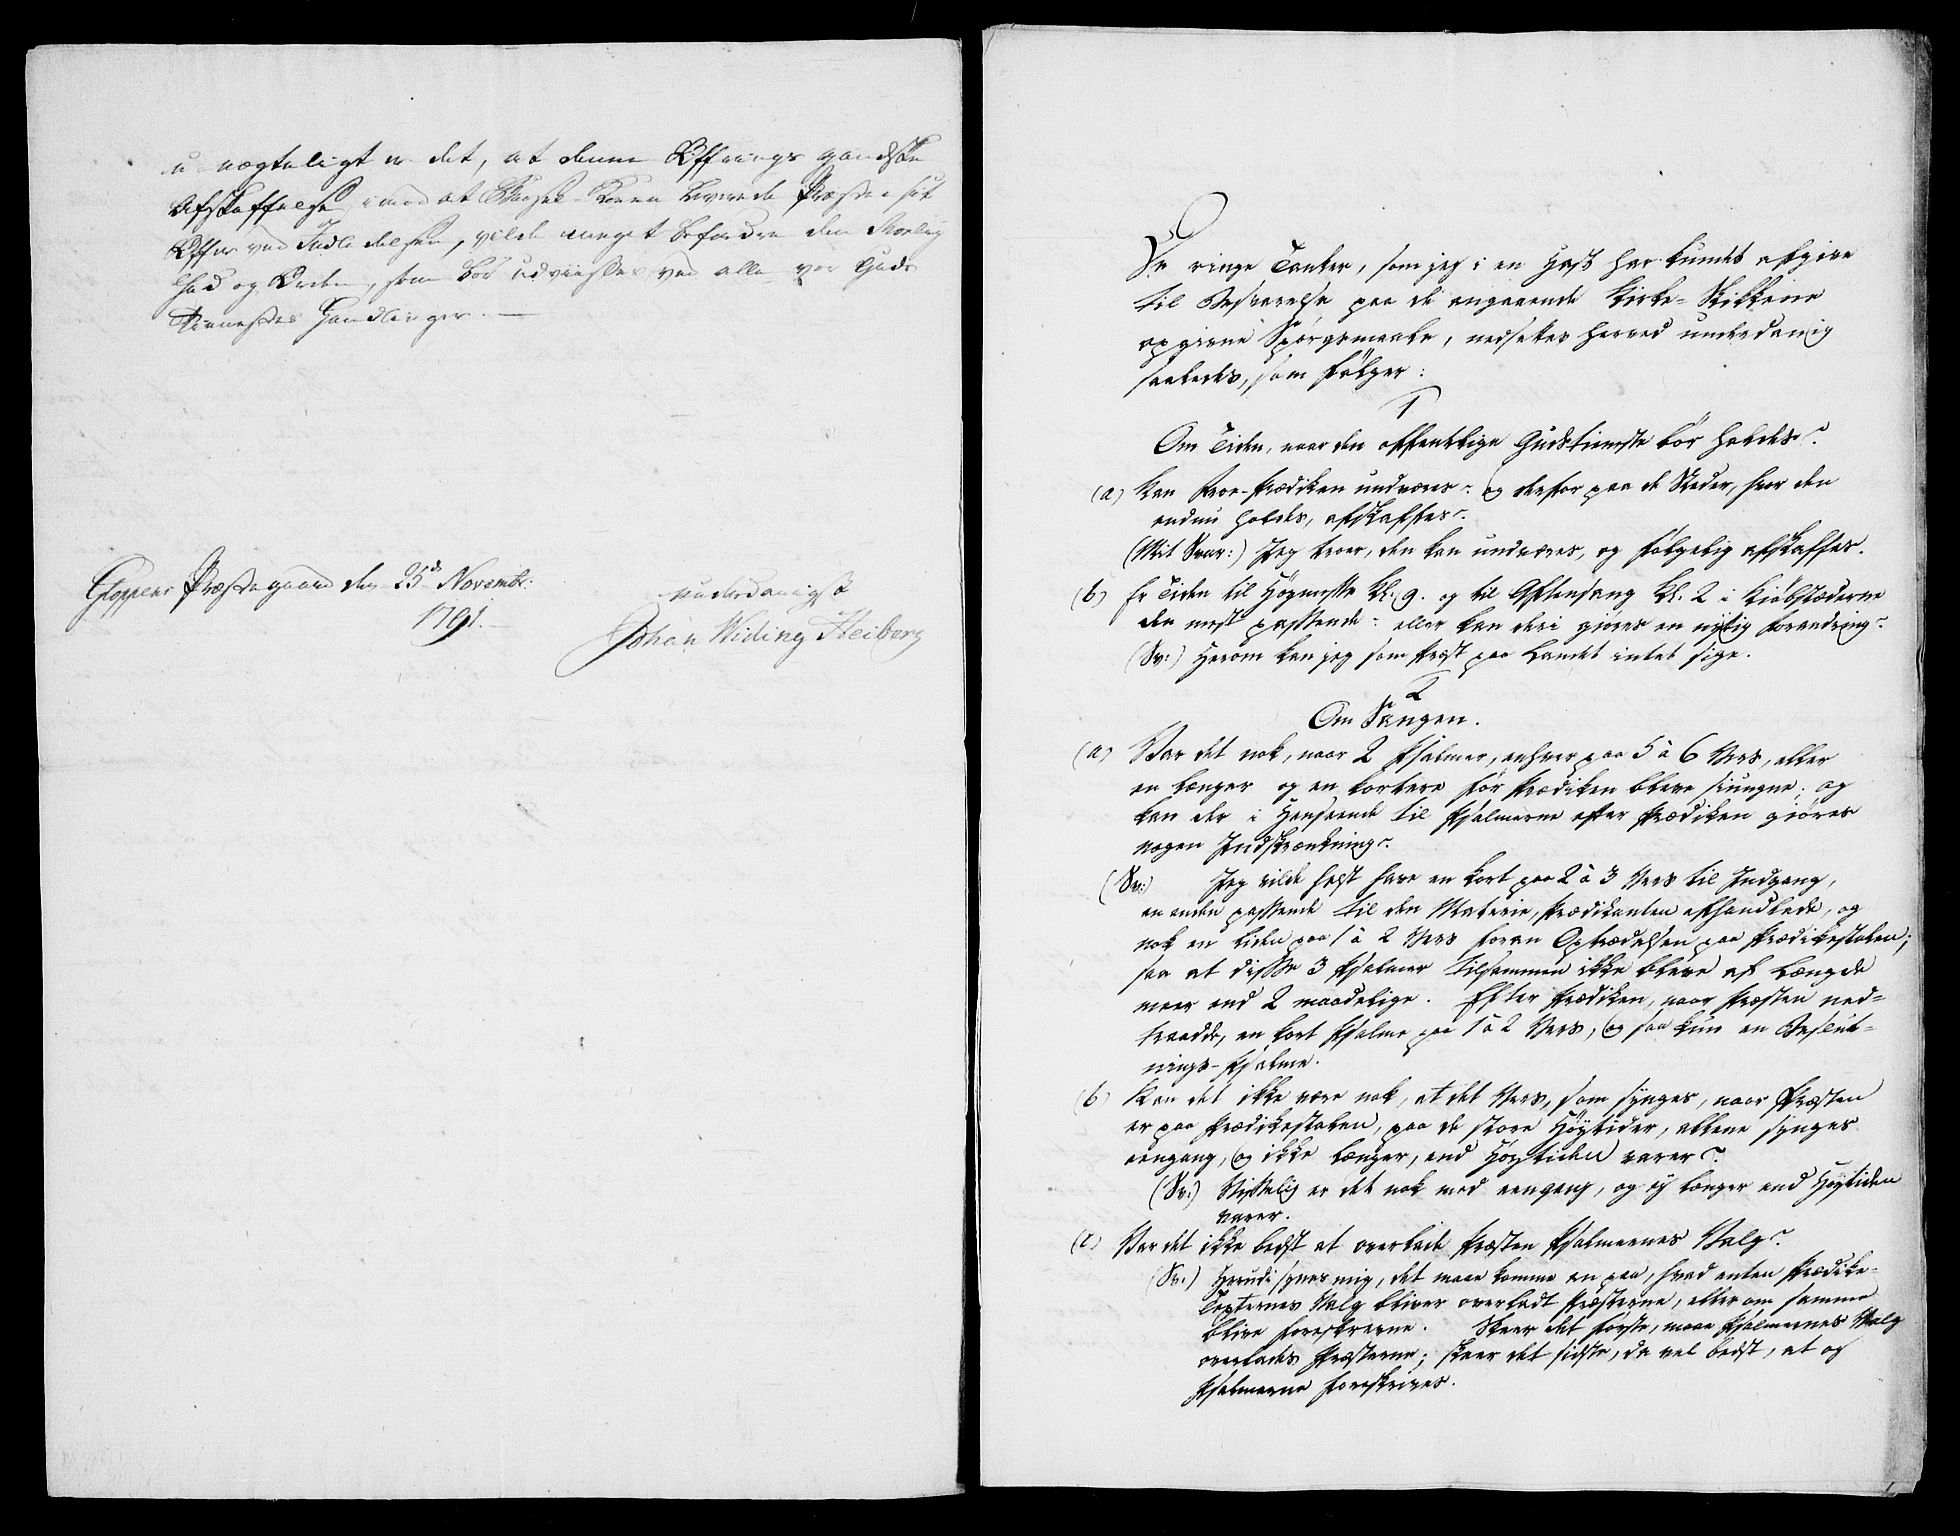 u-nægteligt er det, at denne Offrings gandske
Afskaffelse, imod at Barsel-Konen leverede Præsten sit
Offer ved Indledelsen, vilde meget befordre den Roelig
hed og Orden, som bør udviises ved alle vor Guds
Tienestes Handlinger. —
Gloppens Præstegaard den 25de Novembr:
1791. —
underdanigst
Johan Widing Heiberg
De ringe Tanker, som jeg i en Hast har kundet afgive
til Besvarelse paa de angaaende Kirke-Skikkene
opgivne Spørgsmaale, nedsættes herved underdanig
saaledes, som følger:
1
Om Tiden, naar den offentlige Gudstieneste bør holdes?
(a) Kan Froe-Prædiken undværes: og derfor paa de Steder, hvor den
endnu holdes, afskaffes?
(Mit Svar:) Jeg troer, den kan undværes, og følgelig afskaffes.
(b) Er Tiden til Høymesse Kl. 9. og til Aftensang Kl. 2 i Kiøbstæderne
den mest passende: eller kan deri giøres en nyttig Forandring?
(Sv:) Herom kan jeg som Præst paa Landet intet sige.
2
Om Sangen.
(a) Var det nok, naar 2 Psalmer, enhver paa 5 à 6 Vers, eller
en længer og en kortere før Prædiken bleve siungne; og
kan der i Henseende til Psalmerne efter Prædiken giøres
nogen Indskrænkning?
(Sv:) Jeg vilde helst have en kort paa 2 à 3 Vers til Indgang,
en anden passende til den Materie, Prædikanten afhandlede, og
nok en liden paa 1 à 2 Vers foran Optrædelsen paa Prædikestolen;
saa at disse 3 Psalmer tilsammen ikke bleve af Længde
meer end 2 maadelige. Efter Prædiken, naar Præsten ned-
traadde, en kort Psalme paa 1 à 2 Vers, og saa kun en Beslut-
nings-Psalme.
(b) Kan det ikke være nok, at det Vers, som synges, naar Præsten
er paa Prædikestolen, paa de store Høytider, allene synges
eengang, og ikke længer, end Høytiden varer?
(Sv:) Visselig er det nok med eengang, og ey længer end Høytiden
varer.
(c) Var det ikke bedst at overlade Præsten Psalmernes Valg?
(Sv:) Herudi synes mig, det maae komme an paa, hvad enten Prædike-
Texternes Valg bliver overladt Præsterne, eller om samme
blive foreskrevne. Skeer det første, maae Psalmernes Valg
overlades Præsterne; skeer det sidste, da vel bedst, at og
Psalmerne foreskrives.